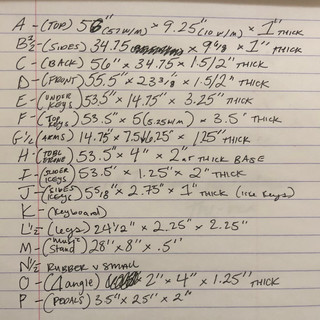 A - (TOP) 56" (57 W/M) × 9.25" (10 W/M) × 1" THICK
B½ - (SIDES) 34.75 × 9 5/8 × 1" THICK
C - (BACK) 56" × 34.75 × 1.5/2" THICK
D - (FRONT) 55.5" × 23 3/8 × 1.5/2" THICK
E - (UNDER KEYS) 53.5" × 14.75" × 3.25" THICK
F - (KEYS) 53.5" × 5 (5.25 W/M) × 3.5" THICK
G½ (ARMS) 14.75" × 7.5/6.25" × THICK
H - 53.5" × 4" × 2" AT THICK BASE
I - (UNDER KEYS) 53.5" × 1.25" × 2" THICK
J - (SIDES KEYS) 5 5/8" × 2.75" × 1" THICK
K - (Keyboard)
L½ - (Legs) 24 1/2" × 2.25" × 2.25"
M - (music stand) 28" × 8" × .5"
N½ RUBBER V SMALL
O - (angle) 2" × 4" × 1.25" THICK
P - (PEDALS) 3.5" × 25" × 2"